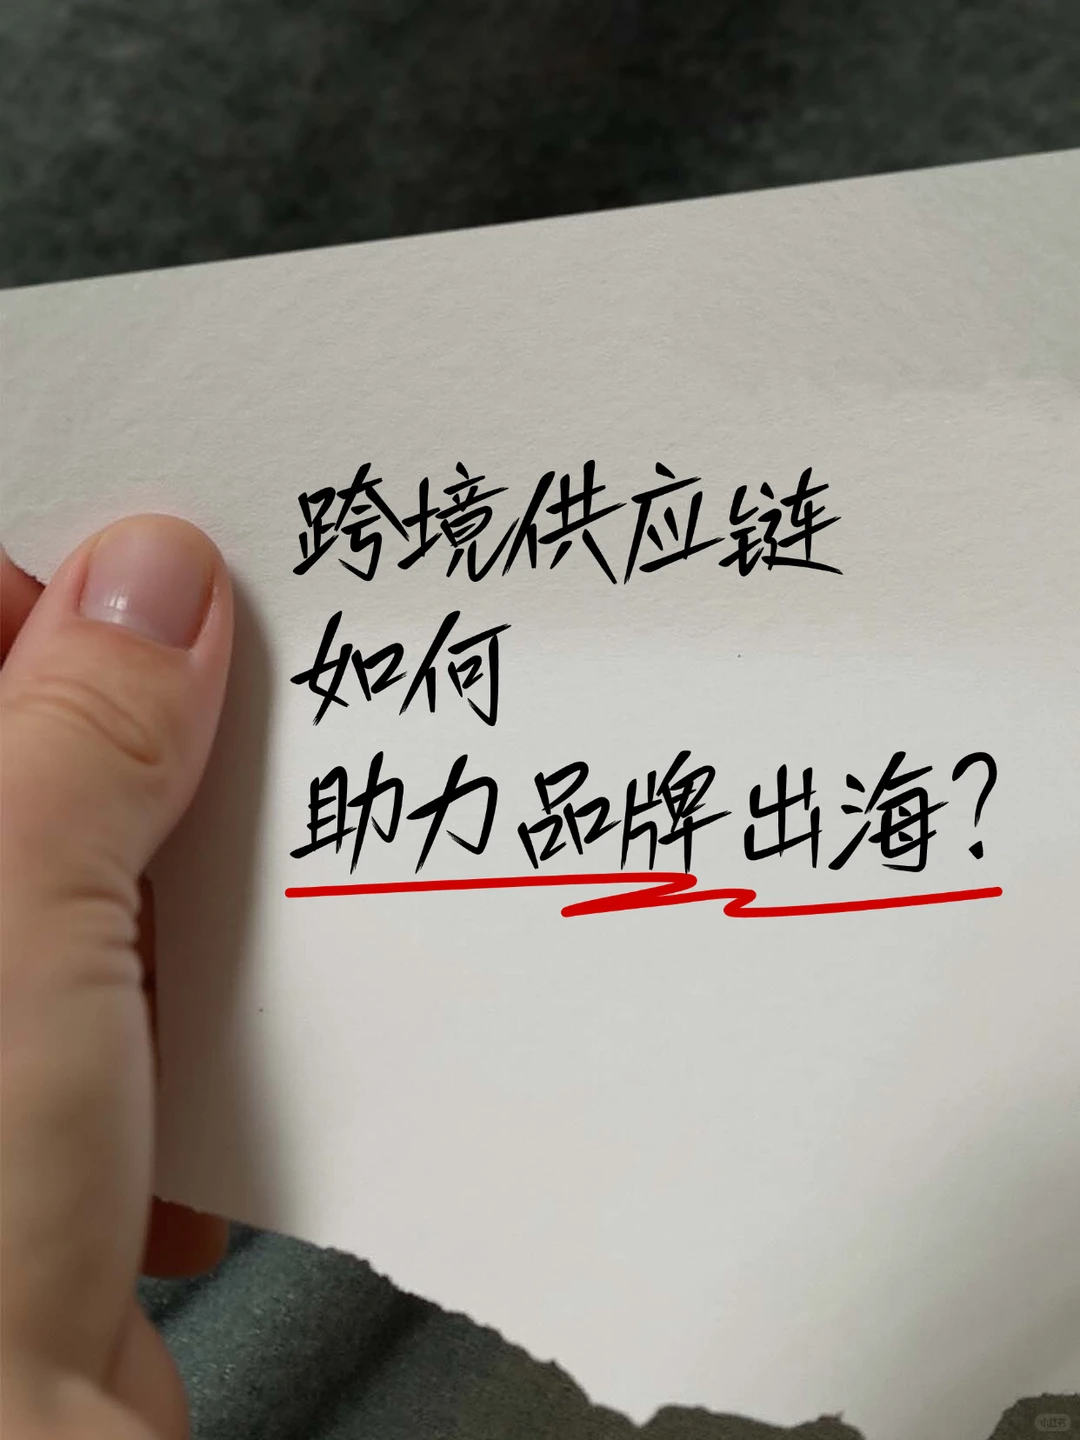 跨境供应链
如何
助力品牌出海?
小红书